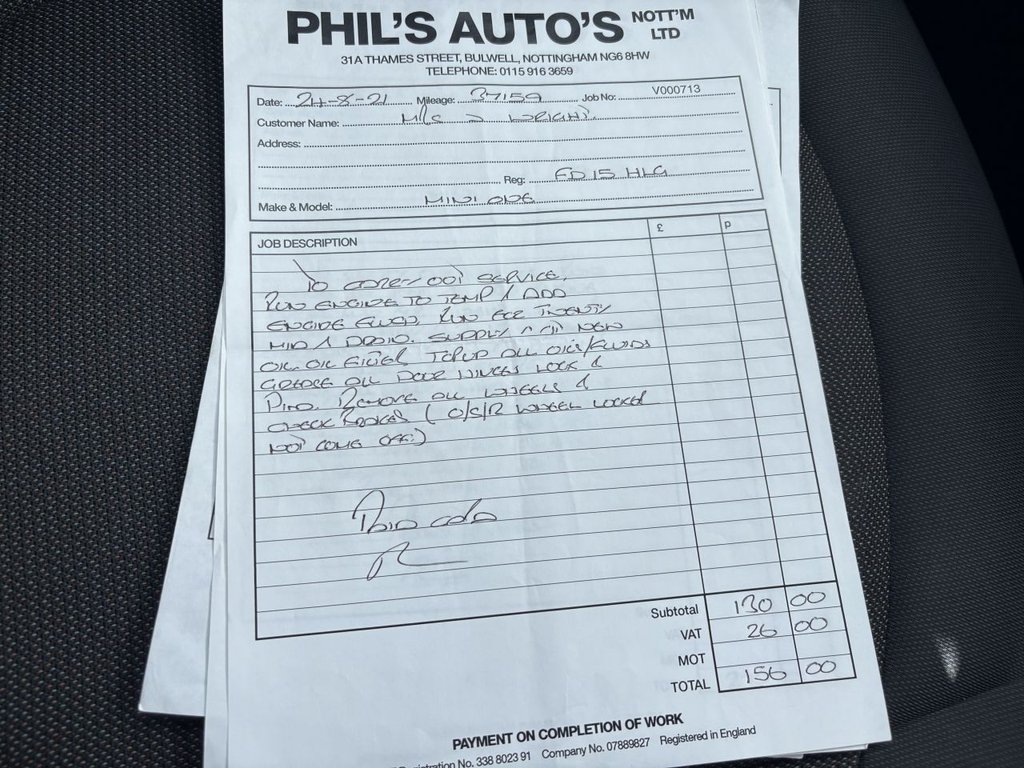 PHIL'S AUTO'S NOTT'M LTD
31A THAMES STREET, BULWELL, NOTTINGHAM NG6 8HW
TELEPHONE: 0115 916 3659
Date: 24-8-21 Mileage: 37159 Job No: V000713
Customer Name: WRIGHT
Address:
Reg: FD15 HLG
Make & Model: MINI ONE
JOB DESCRIPTION £ p
TO CARRY OUT SERVICE.
RUN ENGINE TO TEMP / ADD
ENGINE FLUSH, RUN FOR TWENTY
MIN / DRAIN. SUPPLY / FIT NEW
OIL, OIL FILTER TOP UP ALL OILS/FLUIDS
GREASE ALL DOOR HINGES LOCK &
REMOVE ALL WHEELS &
CHECK BRAKES ( O/S/R WHEEL LOCKED
NOT COME OFF.)
Subtotal 130 00
VAT 26 00
MOT
TOTAL 156 00
PAYMENT ON COMPLETION OF WORK
istration No. 338 8023 91 Company No. 07889827 Registered in England